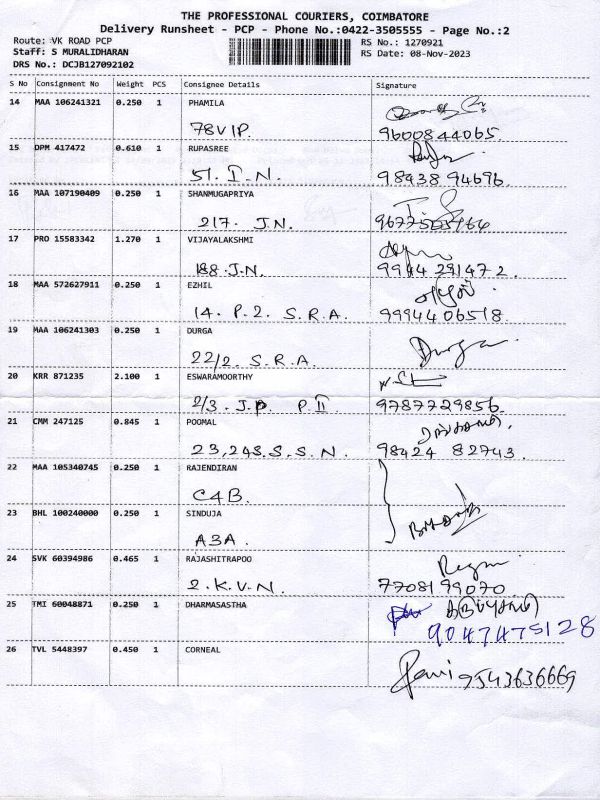 THE PROFESSIONAL COURIERS, COIMBATORE
Delivery Runsheet - PCP - Phone No.:0422-3505555 - Page No.:2
Route: VK ROAD PCP
RS No.: 1270921
Staff: S MURALIDHARAN
RS Date: 08-Nov-2023
DRS No.: DCJB127092102
S No Consignment No Weight PCS Consignee Details Signature
14 MAA 106241321 0.250 1 PHAMILA
78VIP. 9600844065.
15 DPM 417472 0.610 1 RUPASREE
51. I. N. 98438 94696.
16 MAA 107190409 0.250 1 SHANMUGAPRIYA
217. J.N.
17 PRO 15583342 1.270 1 VIJAYALAKSHMI
188.J.N. 9944 291472.
18 MAA 572627911 0.250 1 EZHIL எழில்
14. P.2. S.R.A. 9994406518.
19 MAA 106241303 0.250 1 DURGA
22/2. S.R.A. Durga
20 KRR 871235 2.100 1 ESWARAMOORTHY
2/3. J.P. P II 9787729856.
21 CMM 247125 0.845 1 POOMAL
23,24S.S.S.N. 98424 82743.
22 MAA 105340745 0.250 1 RAJENDIRAN
C4B.
23 BHL 100240000 0.250 1 SINDUJA
A3A.
24 SVK 60394986 0.465 1 RAJASHITRAPOO
2.K.V.N. 7708199070.
25 TMI 60048871 0.250 1 DHARMASASTHA
9047475128
26 TVL 5448397 0.450 1 CORNEAL
9543636669